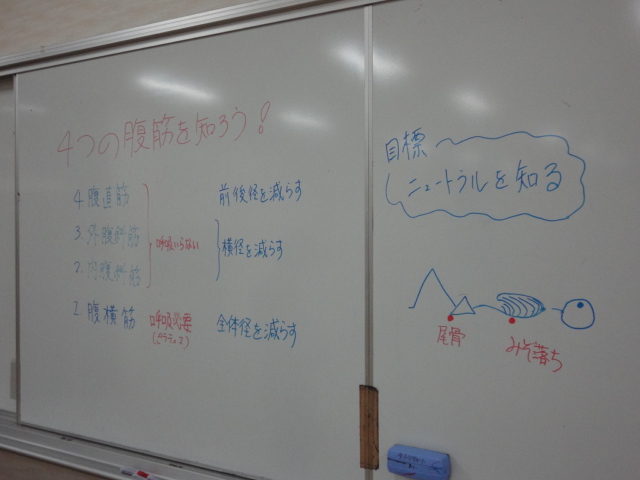 4つの腹筋を知ろう!
4. 腹直筋
3. 外腹斜筋
2. 内腹斜筋
呼吸いらない
前後径を減らす
横径を減らす
1. 腹横筋 呼吸必要 全体径を減らす
目標
ニュートラルを知る
尾骨
みぞ落ち